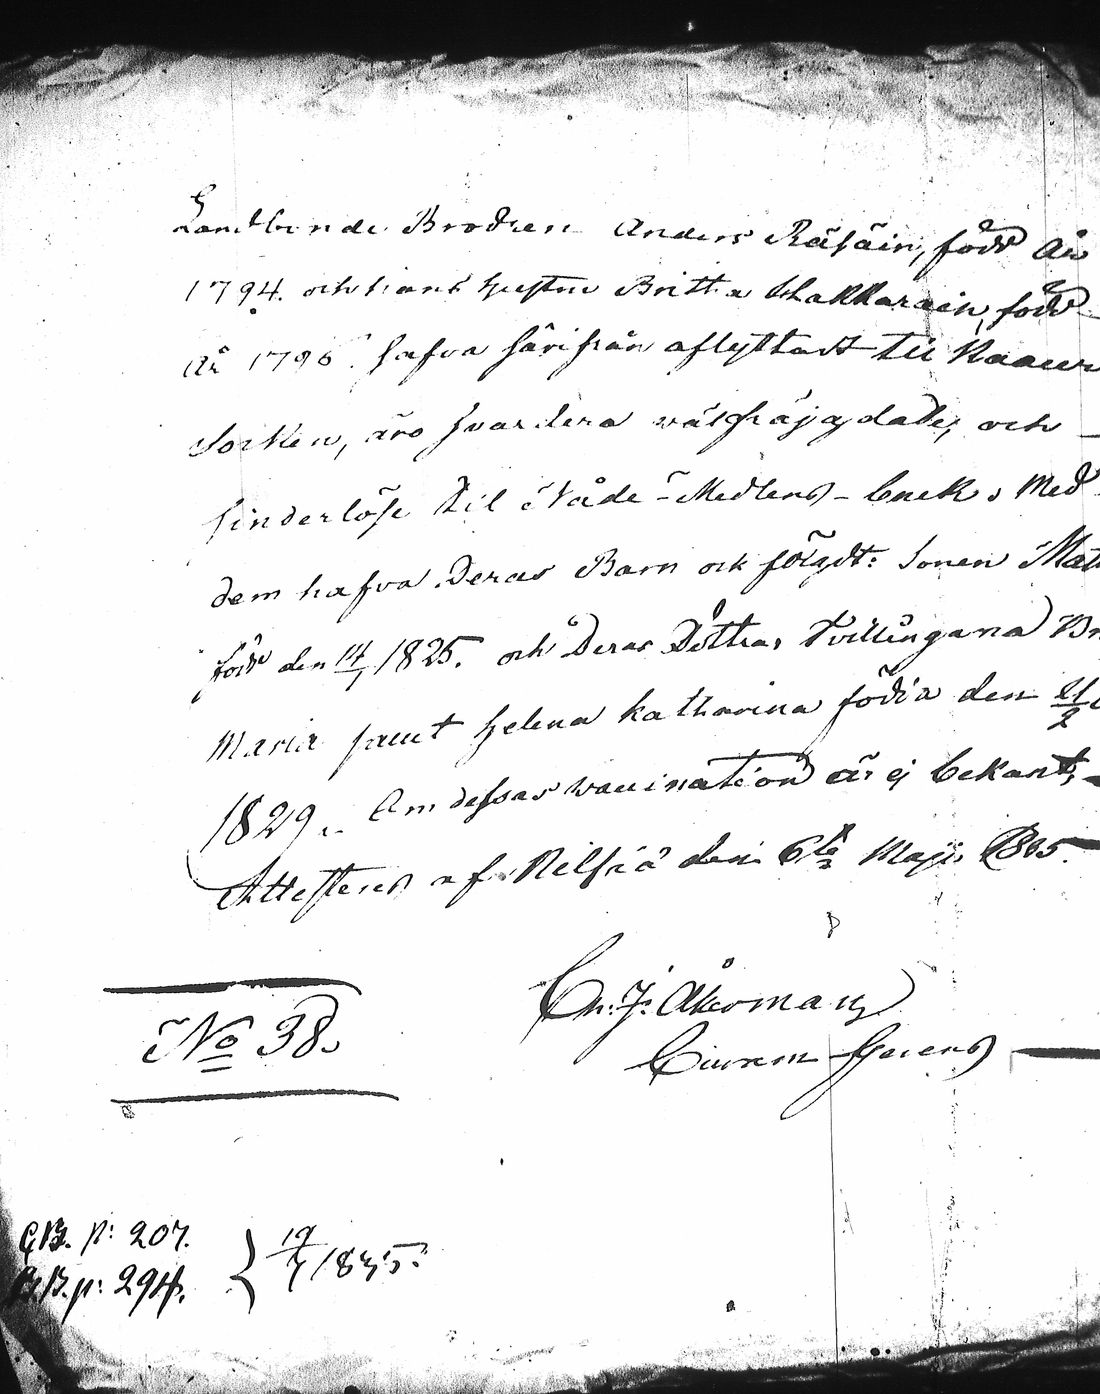 Landtbonde Brodren Anders Räsäin, född År
1794. och hans Hustru Britta Hakkarain, född
År 1796. hafva härifrån aflyttadt til Kaavi
Socken, äro hvardera välfräjgdade, och
hinderlöse til Nåde-Medlens-bruk. Med
dem hafva deras Barn ock följdt: Sonen Mat
född den 14/1 1825. och Deras Döttrar Tvillingarna Br
Maria samt Helena Katharina födda den 21/2
1829. Om dessas vaccination är ej bekant,
Attesteras af Nilsiä den 6te Maji 1835.
Ch. J. Åkerman
N:o 38.
G.B. p: 207.
B.B. p: 294. } 19/7 1835.